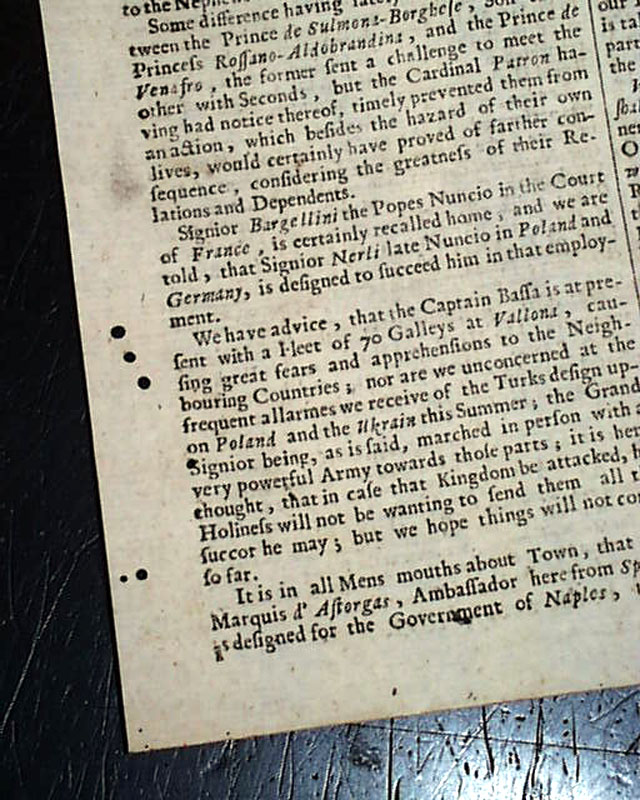 to the Nephews
Some difference having lately
tween the Prince de Sulmona-Borghese, Son
Princeſs Roſſano-Aldobrandina, and the Prince de
Venafro, the former ſent a challenge to meet the
other with Seconds, but the Cardinal Patron ha-
ving had notice thereof, timely prevented them from
an action, which beſides the hazard of their own
lives, would certainly have proved of farther con-
ſequence, conſidering the greatneſs of their Re-
lations and Dependents.
Signior Bargellini the Popes Nuncio in the Court
of France, is certainly recalled home, and we are
told, that Signior Nerli late Nuncio in Poland and
Germany, is deſigned to ſucceed him in that employ-
ment.
We have advice, that the Captain Baſſa is at pre-
ſent with a Fleet of 70 Galleys at Vallona, cau-
ſing great fears and apprehenſions to the Neigh-
bouring Countries; nor are we unconcerned at the
frequent allarmes we receive of the Turks deſign up-
on Poland and the Ukrain this Summer; the Grand
Signior being, as is ſaid, marched in perſon with a
very powerful Army towards thoſe parts; it is her
thought, that in caſe that Kingdom be attacked, h
Holineſs will not be wanting to ſend them all t
ſuccor he may; but we hope things will not co
ſo far.
It is in all Mens mouths about Town, that
Marquis d' Aſtorgas, Ambaſſador here from Sp
is deſigned for the Government of Naples,
our
is ta
part
the
ſha
ne
O
w
R